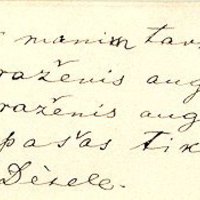 manim tav
raženis aug
raženis aug
pašas tik
Dēsele.